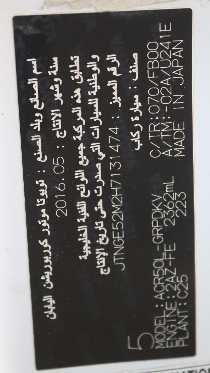 اسم الصانع وبلد الصنع : تويوتا موتور كوربوريشن اليابان
سنة وشهر الانتاج : 2016.05
تطابق هذه المركبة جميع اللوائح الفنية الخليجية
والوطنية للسيارات التي صدرت حتى تاريخ الإنتاج
الرقم المميز : JTNGE52M2H7131474
صنف : سيارة ركاب
5
MODEL: ACR50L-GRPDKV
ENGINE: 2AZ-FE 2362mL
PLANT: C25 223
C/TR: 070/FB00
A/TM: -02A/U241E
MADE IN JAPAN